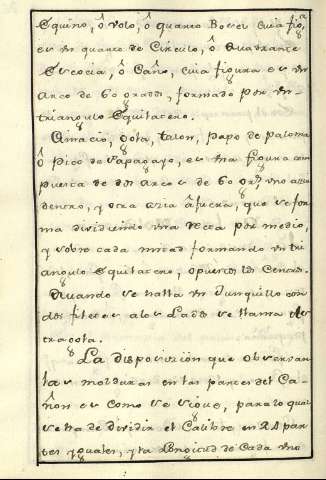 Equino, ô Volo, ô quarto Bocel cuia figª
es un quarto de Circulo, ô Quadrante
Escocia, ô Caño, cuia figura es un
Arco de 60 grados, formado por un
triangulo Equilatero.
Cimacio, gola, talon, papo de paloma
ô Pico de Papagayo, es una figura com
puesta de dos Arcos de 60 grs uno acia
dentro, y otro acia âfuera, que se for
ma dividiendo una Recta por medio,
y sobre cada mitad formando un tri
angulo Equilatero, opuestos los Centros.
Quando se halla un Junquillo con
dos filetes a los Lados se llama As
tragalo.
La disposicion que observan
las molduras en las partes del Ca
ñon es como se sigue, para lo qual
se ha de dividir el Calibre en 24 par
tes yguales, y la Longitud de Cada una